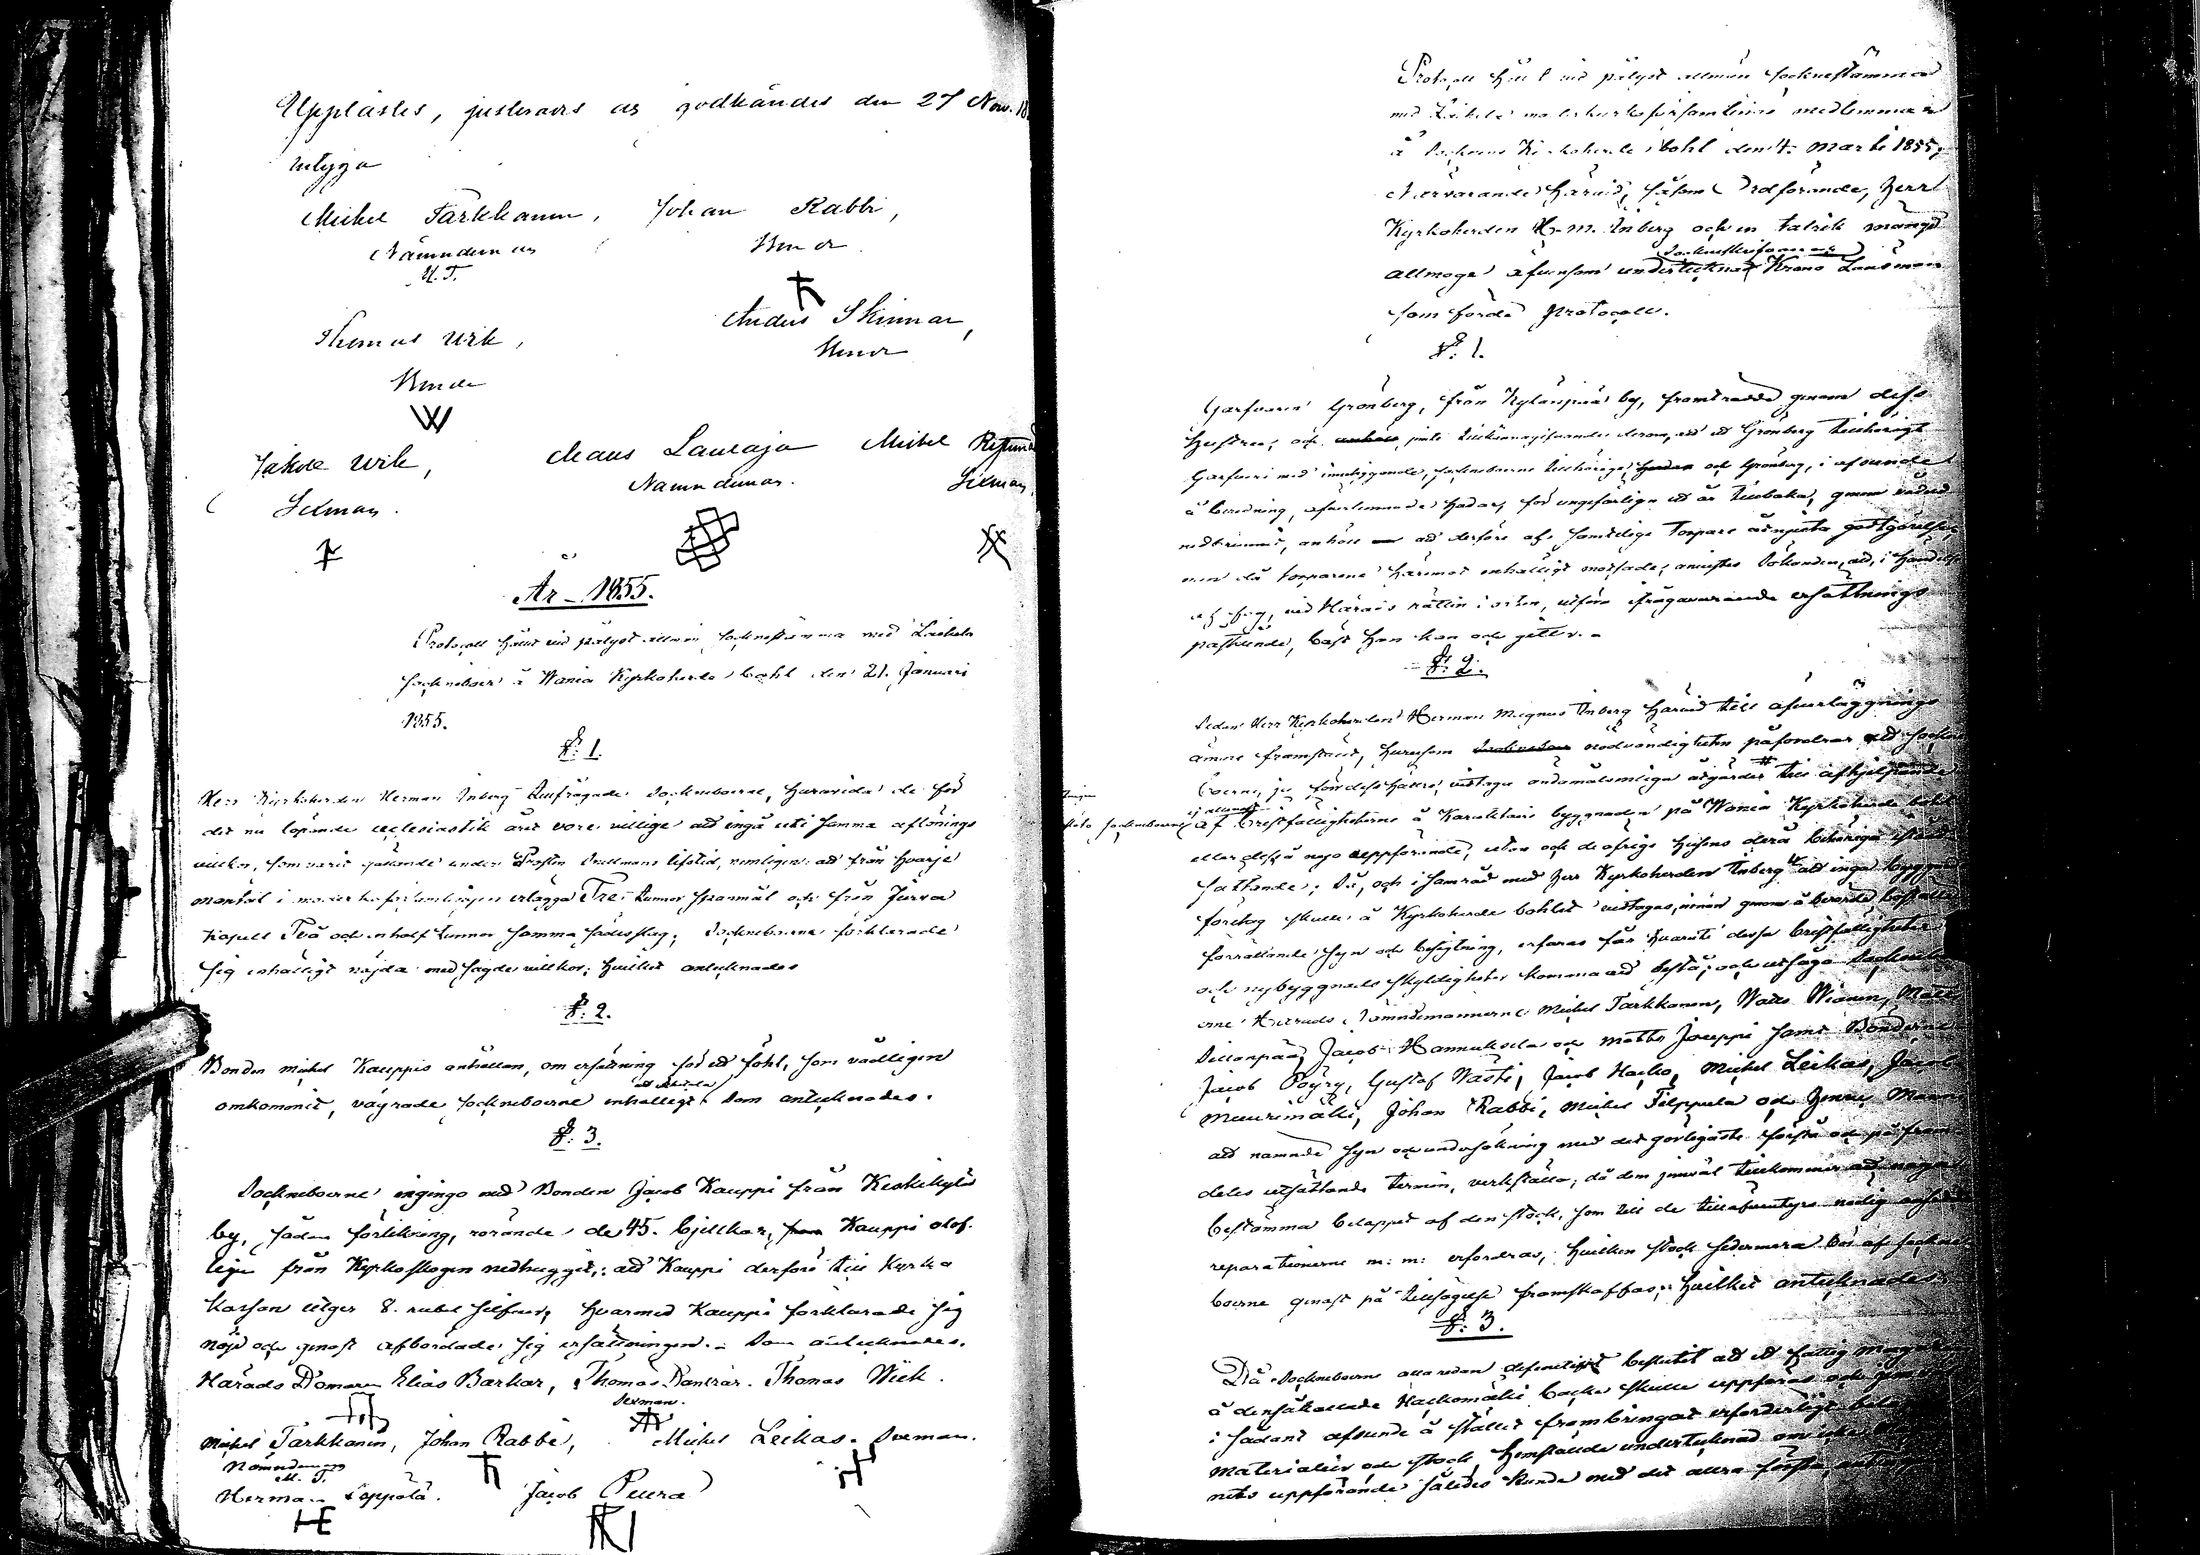 Upplästes, justerades och godkändes den 27 Nov. 18
intyga
Michel Tarkkanen, Johan Rabbi,
Nämndeman Bonde
M. T.
Anders Skinnar,
Thomas Wik, Bonde
Bonde
Jakob Wik, Maus Lauraja Michel
Sexman. Nämndeman. Sexman
År 1855.
Protocoll hållit vid pålyst allmän Sockenstämma med Laihela
Sockneboer å Wania Kyrkoherde bohl den 21. Januari
1855.
§. 1.
Herr Kyrkoherden Herman Inberg tillfrågade Sockneboerne, huruvida de för
det nu löpande ecclesiastik året vore villige att ingå uti samma aflönings
villkor, som varit gällande under Prosten lifstid, nemligen: att från hvarje
mantal i moderkoförsamlingen erlägga Tre tunnor spannmål och från Jurva
Kapell Två och en half tunnor samma sädesslag; Sockneboerne förklarade
sig enhälligt nöjda med sagde villkor; hvilket antecknades
§. 2.
Bonden Michel Kauppis anhållan, om ersättning för ett fohl, som vådligen
omkommit, vägrade Sockneboerne enhälligt Som antecknades.
§. 3.
Sockneboerne ingingo med Bonden Jacob Kauppi från Keskikylä
by, sådan förlikning, rörande de 45. bjelkar, Kauppi olof-
ligen från Kyrkoskogen nedhuggit, att Kauppi derföre till Kyrko
Kassan utger 8. rubel silfver, hvarmed Kauppi förklarade sig
nöjd och genast afbördade sig ersättningen. Som antecknades.
Härads Domaren Elias Barkar, Thomas Thomas Wiik.
Sexman.
Michel Tarkkanen, Johan Rabbi, Michel Leikas. Sexman.
Nämndeman
M. T.
Herman Jacob Peura
Protocoll hållit vid pålyst allmän Sockenstämma
med Laihela moderkyrkoförsamlings medlemmar
å Socknens Kyrkoherde bohl den 4. Martii 1855;
Närvarande härvid, såsom Ordförande, Herr
Kyrkoherden H. M. Inberg och en talrik mängd
Sockneskrifvaren
allmoge äfvensom undertecknad Krono Länsman
som förde Protocoll.
§. 1.
Garfvaren Grönberg, från Kylänpää by, framträdde genom dess
Hustru, och tillkännagifvande derom, att ett Grönberg tillhörigt
Garfveri med inneliggande, socknboerne tillhörige och Grönberg, i afseende
å beredning, öfverlemnade hudar, för ungefärligen ett år tillbaka, genom vådeld
nedbrunnit, anhöll att derföre af samtelige Torpare åtnjuta godtgörelse,
men då torparene häremot enhälligt motsade, anvistes Sökanden, att, i händelse
af fog, vid Härads rätten i orten, utföra ifrågavarande ersättnings
påstående, bäst hon kan och gitter.
§. 2.
Sedan Herr Kyrkoherden Herman Magnus Inberg härvid till öfverläggnings
ämne framställt, hurusom nödvändigheten påfordrar att socken
boerne, ju förr dess hellre, vidtaga ändamålsenliga åtgärder till afhjelpande
af bristfälligheterne å Karaktärs byggnaden på Wania Kyrkoherde bohl
eller dess å nyo uppförande, utan och de öfrige husens derå behöriga
sättande; Så, och i samråd med Herr Kyrkoherden Inberg att inga bygg
företag skulle å Kyrkoherde bohlet vidtagas, innan genom å berörde boställe
förrättande syn och besigtning, erfaras får hvaruti dessa bristfälligheter
och nybyggnads skyldigheter komma att bestå; och utsågo Sockne
erne Härads Nämndemännerne Michel Tarkkanen, Matts
Sillanpää, Jacob Hannuksela och Matts Jouppi samt Bönderne
Jacob Pöyry, Gustaf Wästi, Jacob Hacko, Michel Leikas, Jacob
Muurimäki, Johan Rabbi, Michel Filppula och
att nämnde syn och undersökning med det görligaste förrätta och på
deles utsättande termin, verkställa; då dem jemväl tillkommer att
bestämma beloppet af den stock, som till de tilläfventyrs nödig
reparationerne m. m. erfordras, hvilken stock sedermera bör af sockne
boerne genast på tillsägelse framskaffas; hvilket antecknades.
§. 3.
Då Socknboerne allaredan definitivt beslutit att ett fattig magazin
å den så kallade Hackomäki backe skulle uppföras och
i sådant afseende å stället frambringat erforderligt
materialier och stock, hemställde undertecknad om icke
nets uppförande således kunde med det allra första